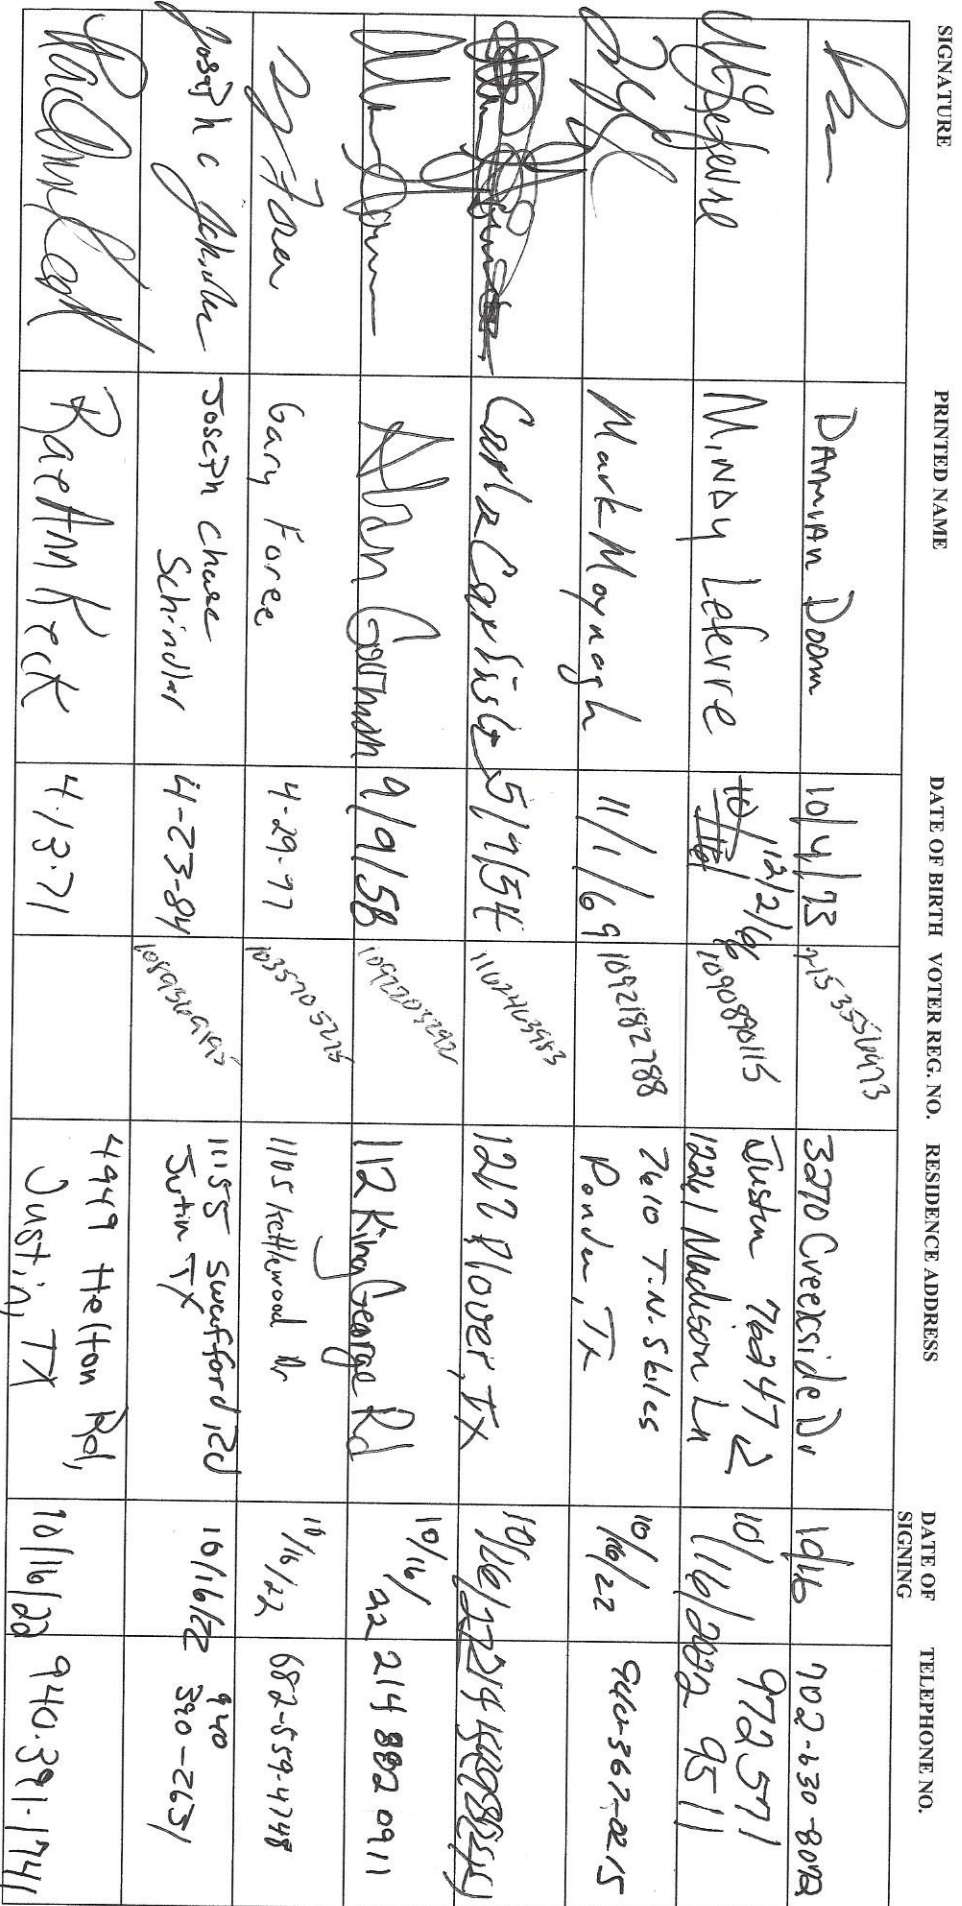 SIGNATURE PRINTED NAME DATE OF BIRTH VOTER REG. NO. RESIDENCE ADDRESS DATE OF SIGNING TELEPHONE NO.
DAmIAn Doom 10/4/73 3270 Creekside Dr 10/16 702-630-8092
MINDy Lefevre 12/2/66 1090890115 Justin 76247 1226 / Madison Ln 10/16/2022 972 571 9511
Mark Moynagh 11/1/69 1092182788 7610 T.N. Skiles Ponder, Tx 10/16/22
Carla Carlisle 5/9/54 1162463983 1212 Plover, TX 10/16/22
Alan Gorman 9/9/58 112 King George Rd 10/16/22 214 882 0911
Gary Foree 4-29-77 1035705275 1105 Kettlewood Dr 10/16/22 682-559-4748
Joseph C Joseph Chase Schindler 4-23-84 11155 Swafford Rd Justin TX 10/16/22 940 390-2631
RaeAnn Keck 4.13.71 4949 Helton Rd, Justin, TX 10/16/22 940.391.1741